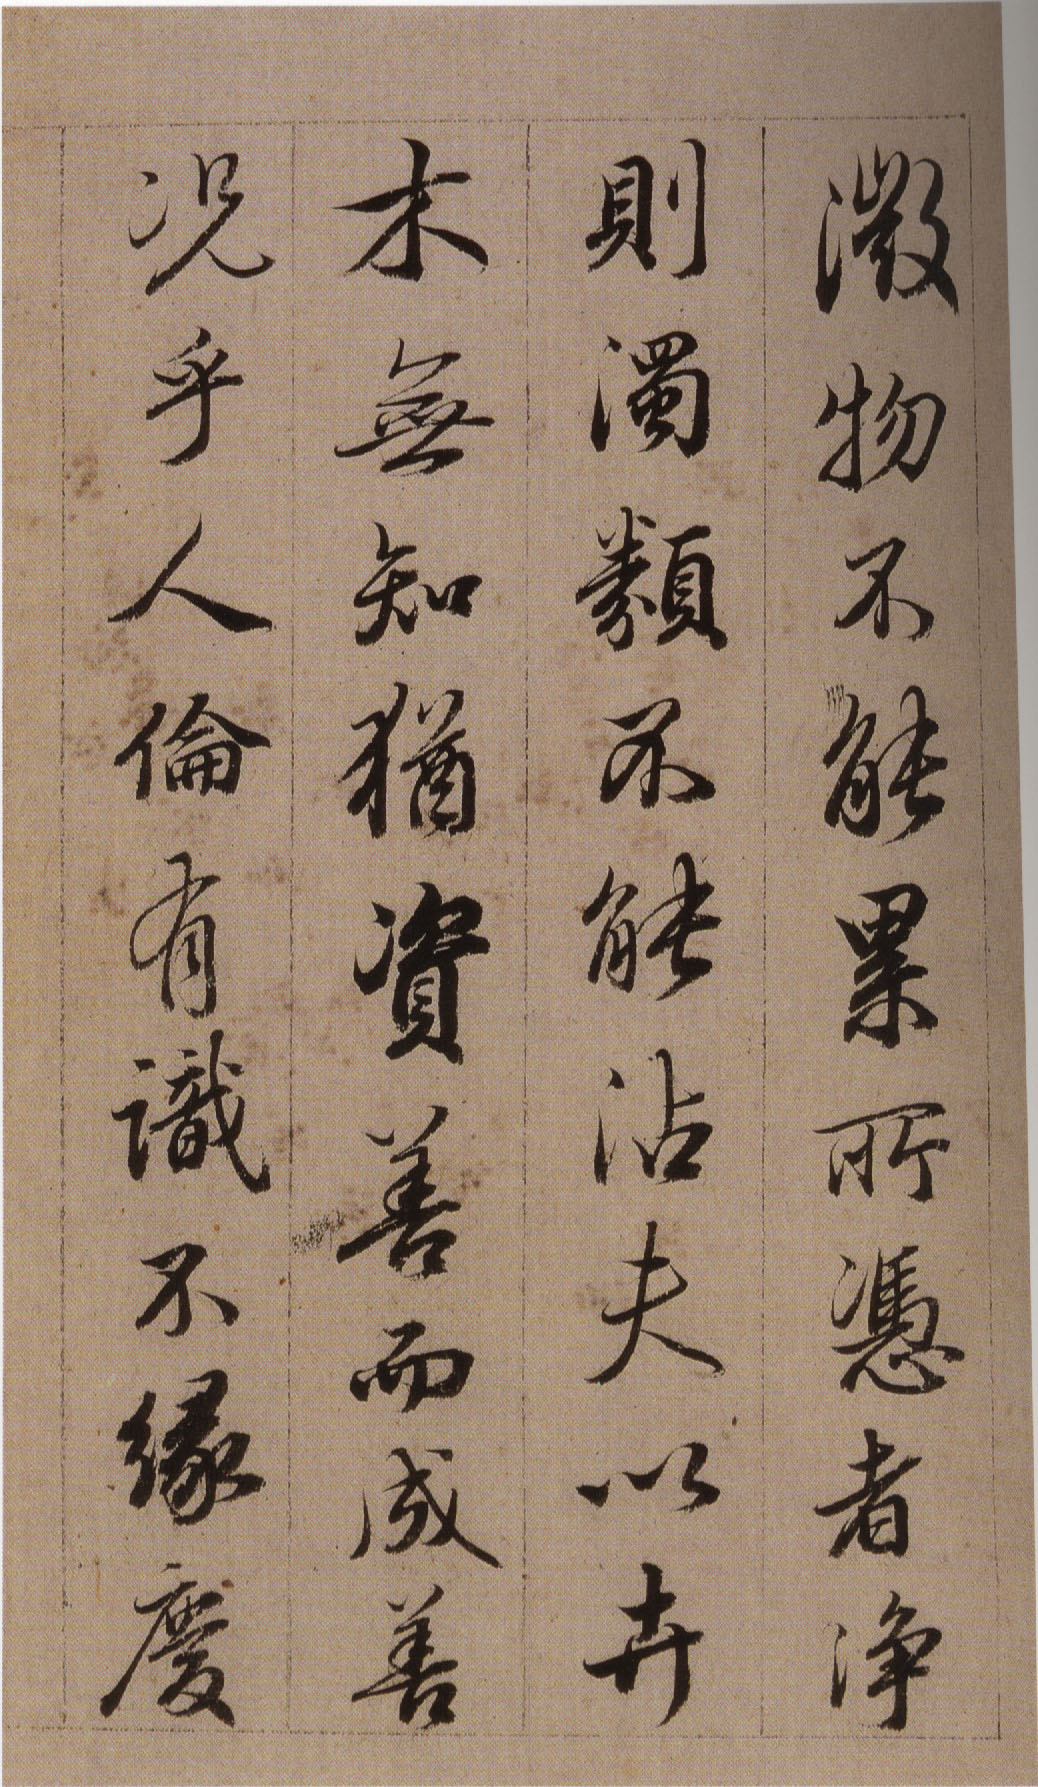 微物不能累所憑者淨
則濁類不能沾夫以卉
木無知猶資善而成善
况乎人倫有識不緣慶